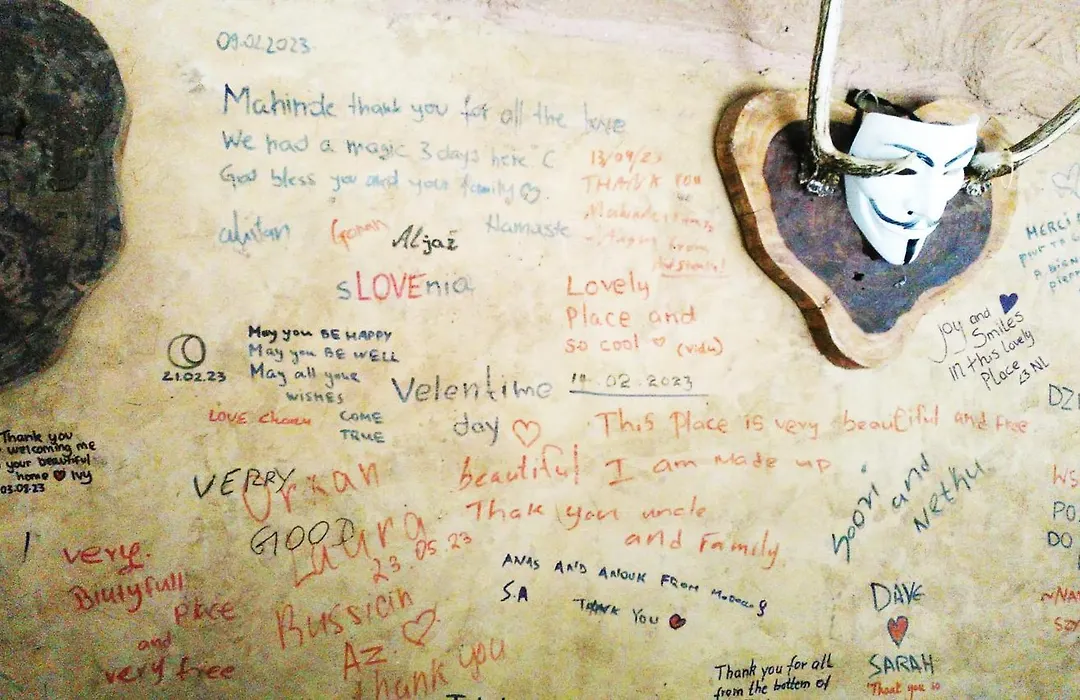 09.02.2023
Mahinde thank you for all the love
We had a magic 3 days here
God bless you and your family
Goran
Aljaž
Namaste
sLOVEnia
13/09/23
THANK YOU
from
Lovely
Place and
so cool ♡ (vidu)
Joy and
Smiles
in this lovely
Place
<3 NL
MERCI
21.02.23
May you BE HAPPY
May you BE WELL
May all your
WISHES
COME
TRUE
LOVE
Velentime
day ♡
14.02.2023
This Place is very beautiful and free
beautiful I am made up
Thak you uncle
and Family
Thank you
welcoming me
your beautiful
home ♥ Ivy
03.08.23
VERRY
GOOD
Urkan
Laura
23.05.23
Russian
Az. ♡
thank you
very.
Biutyfull
place
and
very free
ANAS AND ANOUK FROM
S.A
THANK YOU ♥
Noori and
Nethu
DAVE
♥
SARAH
Thank you for all
from the bottom of